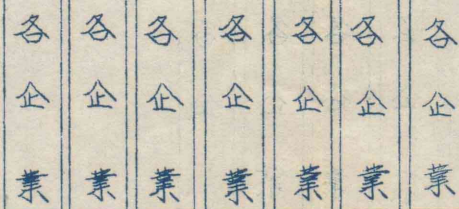 各企業
各企業
各企業
各企業
各企業
各企業
各企業